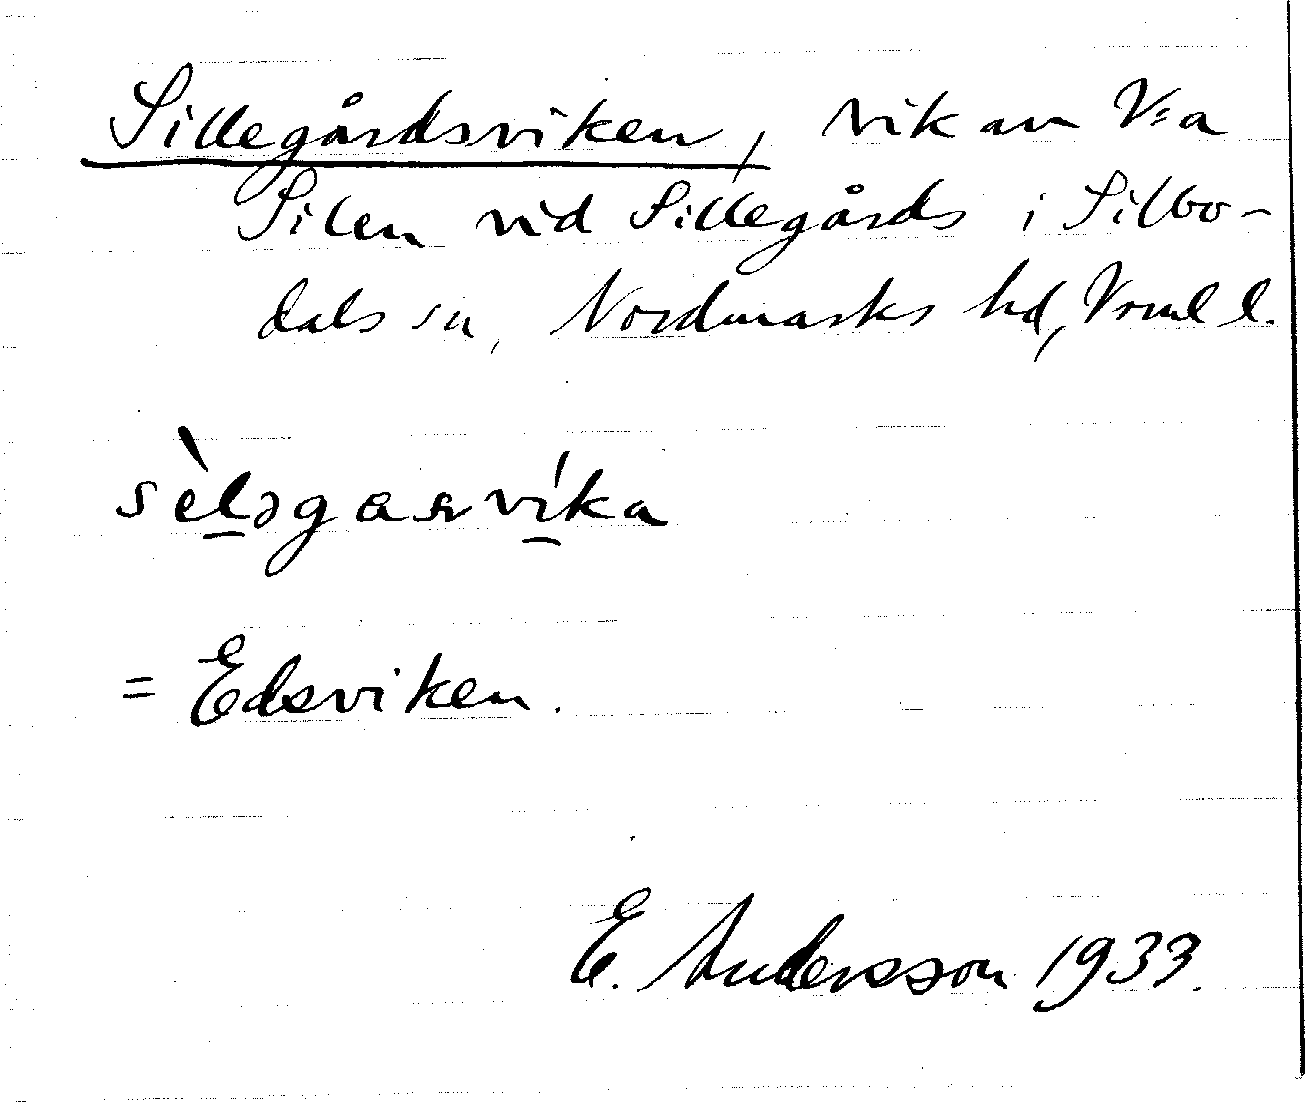 Sillegårdsviken, vik av V:a
Silen vid Sillegårds i Silbo-
dals sn, Nordmarks hd, Vrml l.
sèləgaʂvíka
= Edsviken.
E. Andersson 1933.